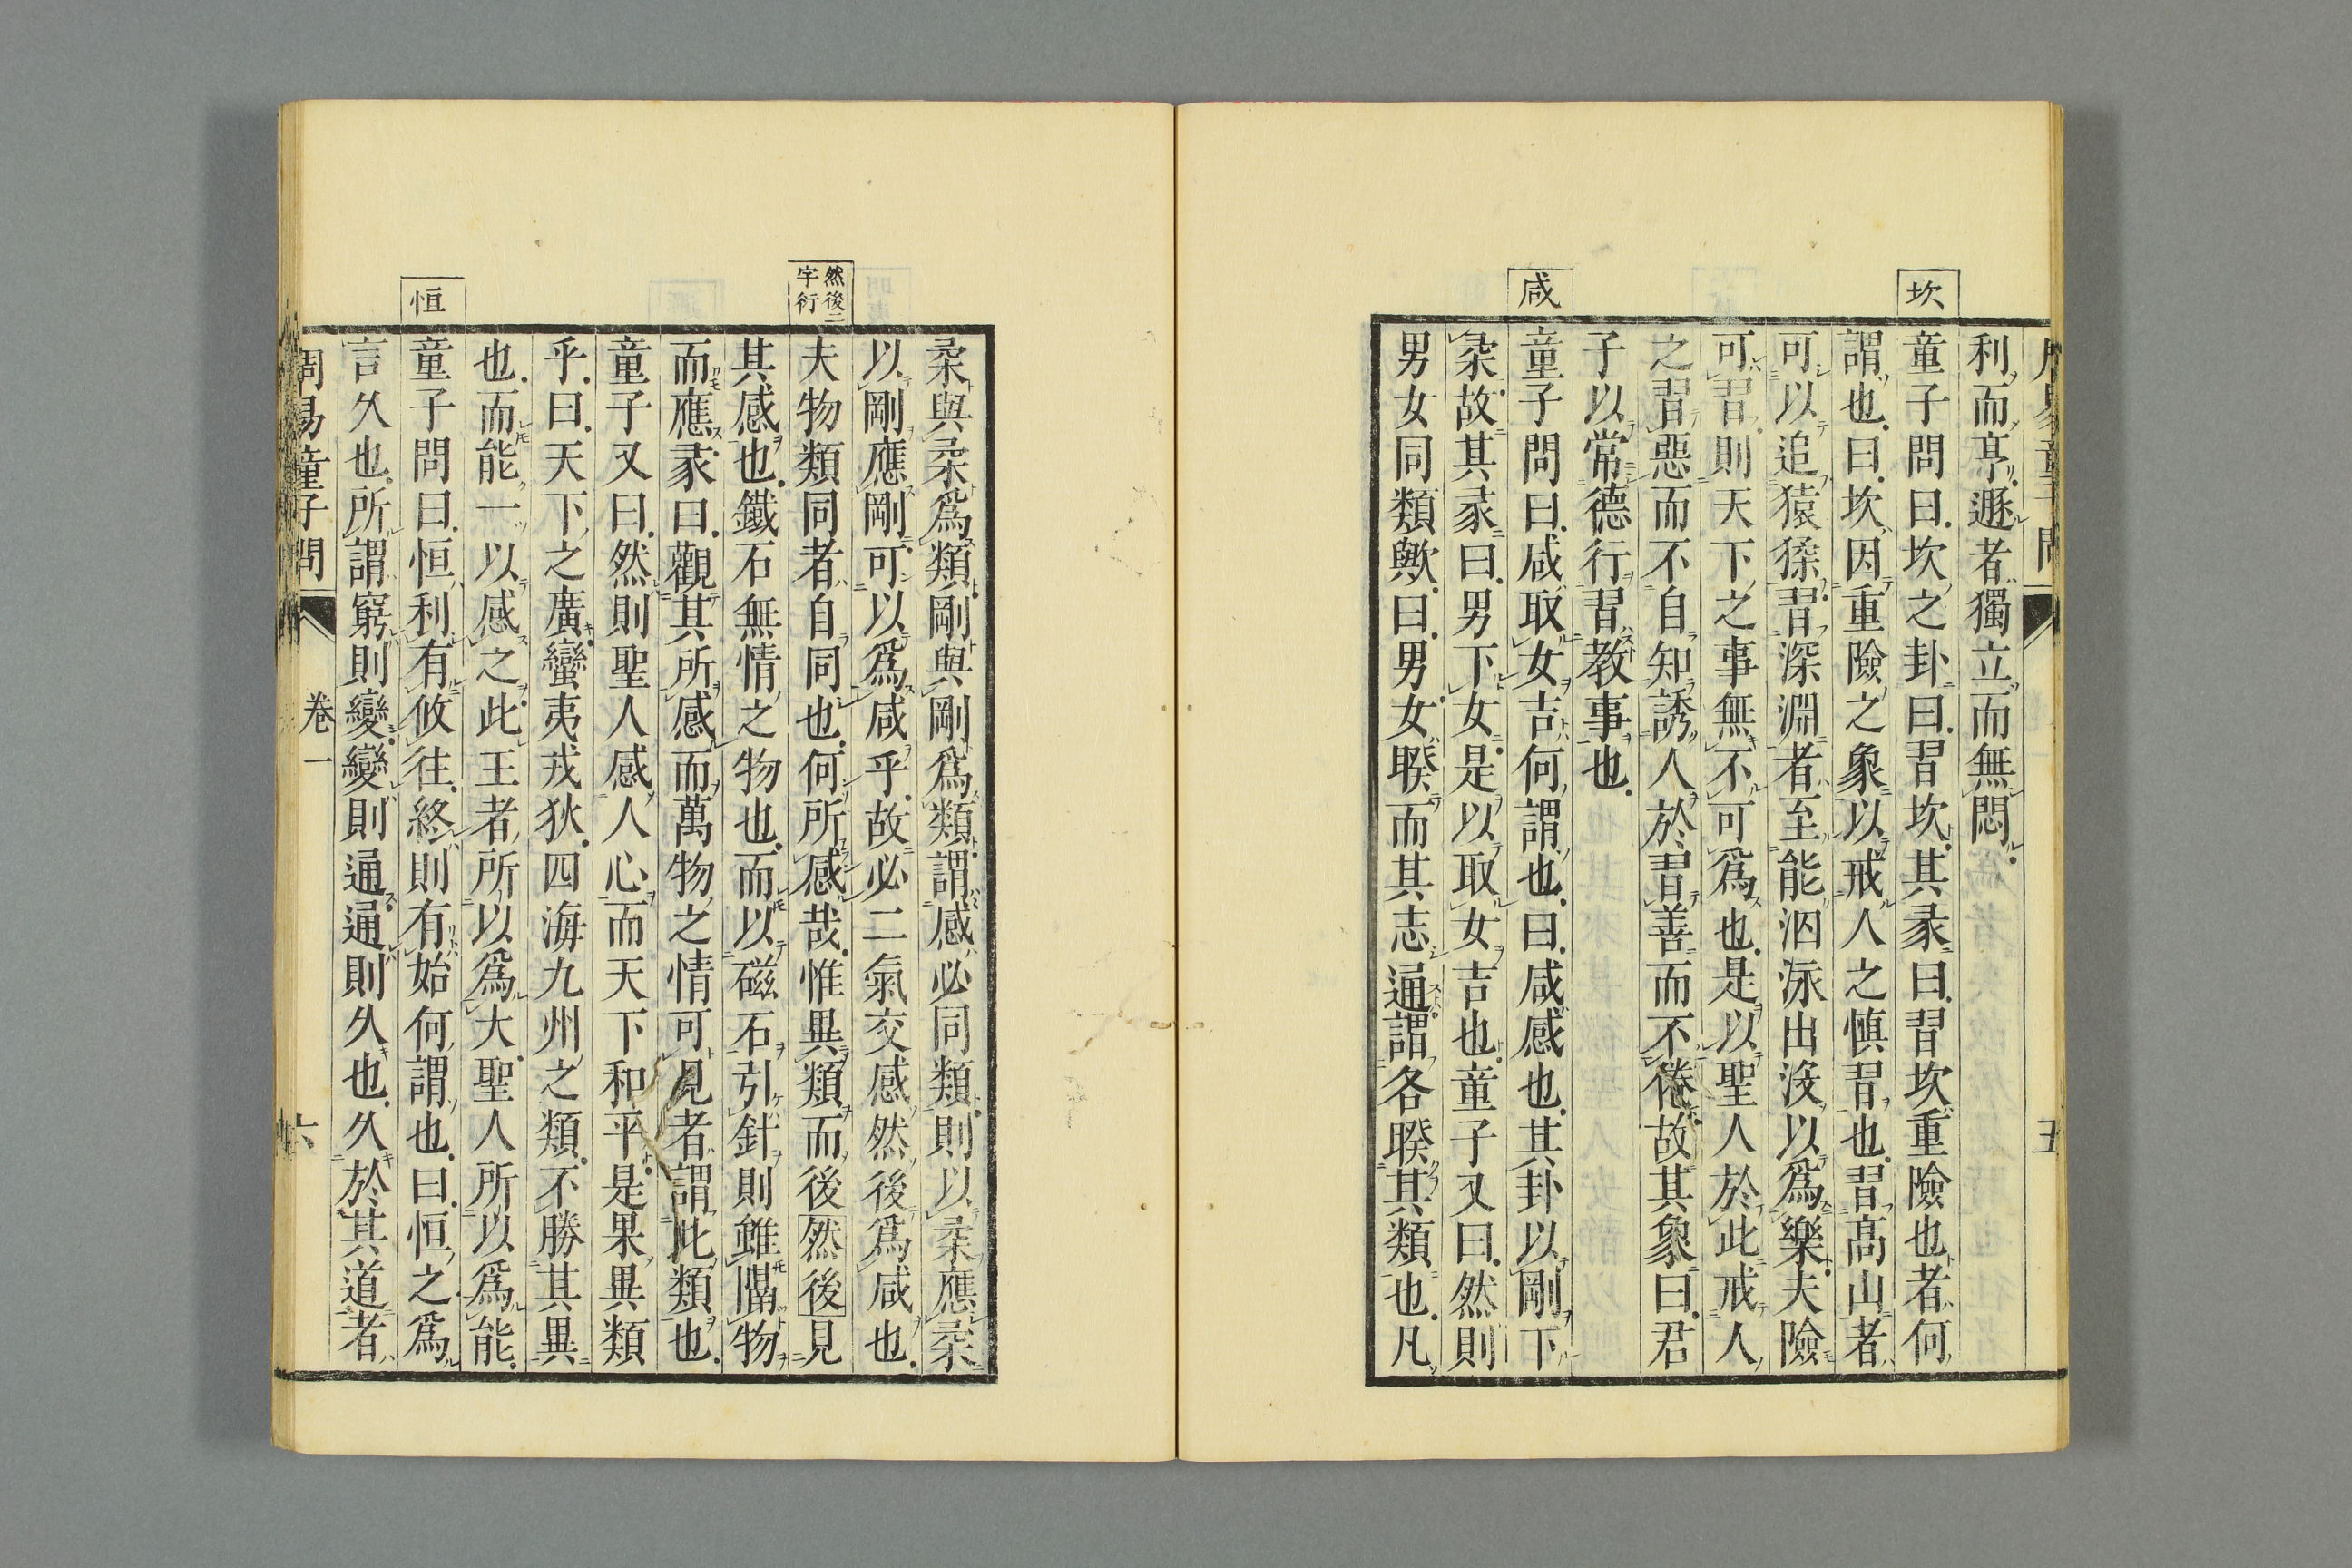 周易童子問
五
利而亨遯者獨立而無悶
坎
童子問曰坎之卦曰習坎其彖曰習坎重險也者何
謂也曰坎因重險之象以戒人之慎習也習高山者
可以追猿猱習深淵者至能泅泳出沒以爲樂夫險
可習則天下之事無不可爲也是以聖人於此戒人
之習惡而不自知誘人於習善而不倦故其象曰君
子以常德行習教事也
咸
童子問曰咸取女吉何謂也曰咸感也其卦以剛下
柔故其彖曰男下女是以取女吉也童子又曰然則
男女同類歟曰男女睽而其志通謂各睽其類也凡
柔與柔爲類剛與剛爲類謂感必同類則以柔應柔
以剛應剛可以爲咸乎故必二氣交感然後爲咸也
然後二
字衍
夫物類同者自同也何所感哉惟異類而後然後見
其感也鐵石無情之物也而以磁石引針則雖隔物
而應彖曰觀其所感而萬物之情可見者謂此類也
童子又曰然則聖人感人心而天下和平是果異類
乎曰天下之廣蠻夷戎狄四海九州之類不勝其異
也而能一以感之此王者所以爲大聖人所以爲能
恒
童子問曰恒利有攸往終則有始何謂也曰恒之爲
言久也所謂窮則變變則通通則久也久於其道者
周易童子問
卷一
六